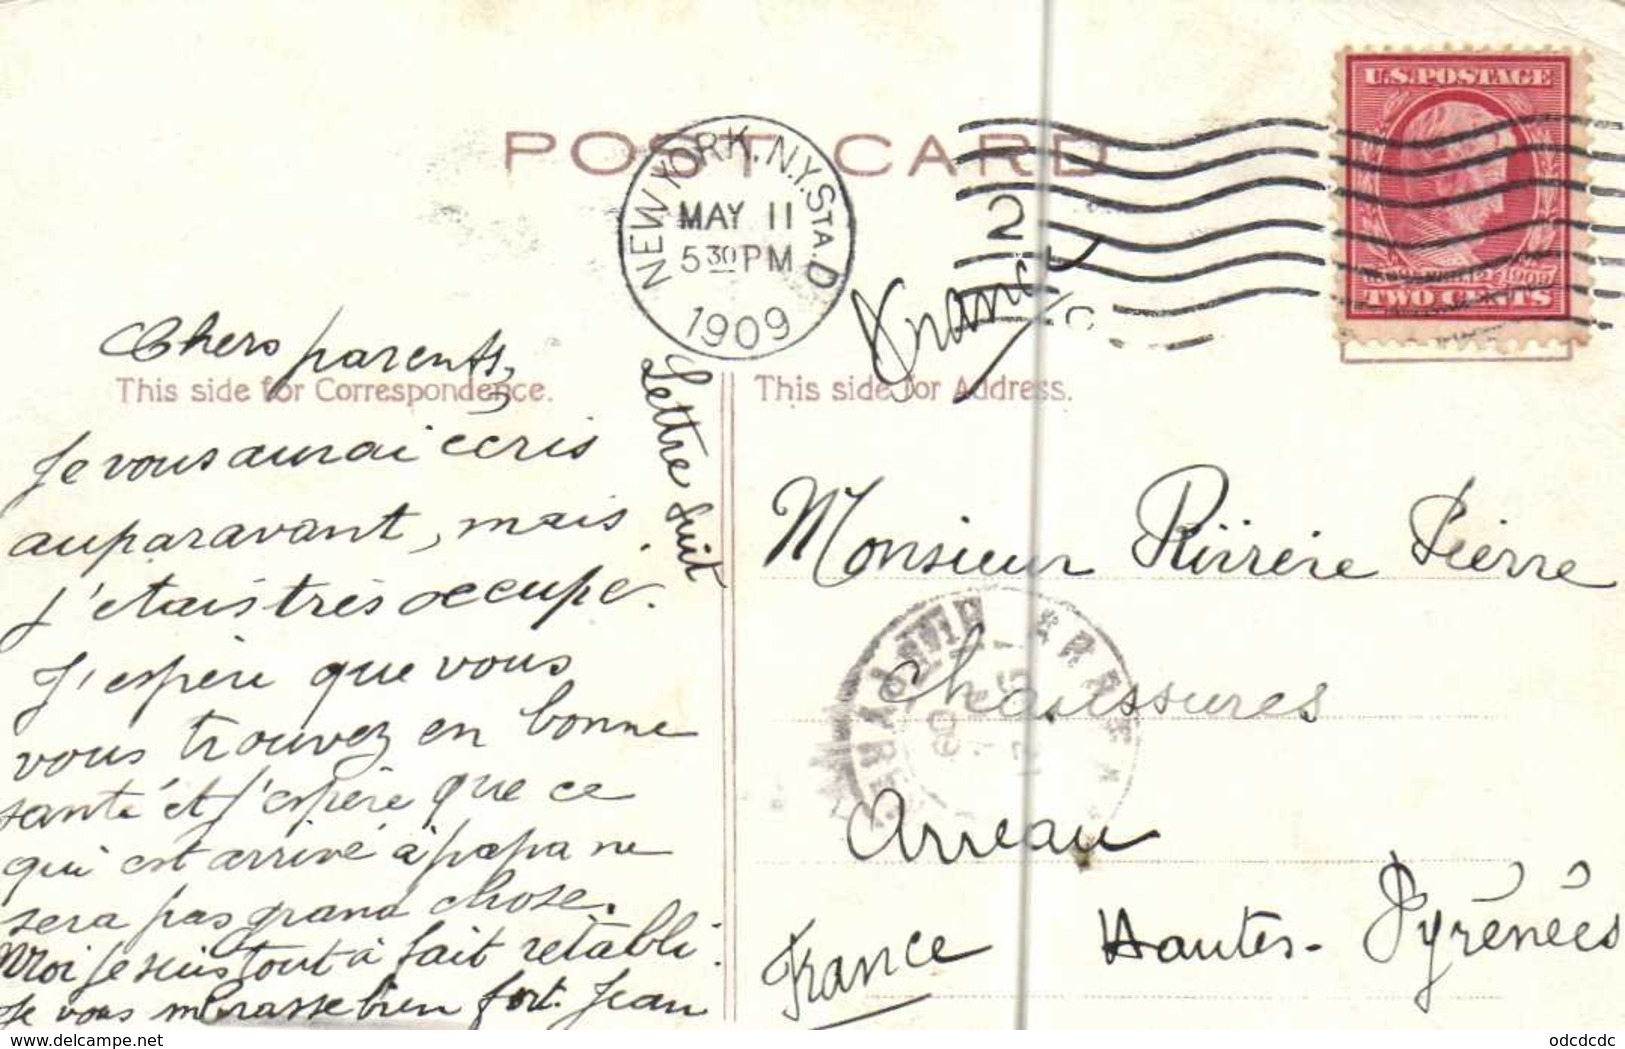 POST CARD
NEW YORK. N.Y. STA. D
MAY 11
5 30 PM
1909
2
U.S. POSTAGE
1909
TWO CENTS
France
This side for Correspondence.
This side for Address.
Chers parents,
Je vous aurai écris
auparavant, mais
j'étais très occupé.
J'espère que vous
vous trouvez en bonne
santé et j'espère que ce
qui est arrivé à papa ne
sera pas grand chose.
Moi je suis tout à fait rétabli.
Je vous embrasse bien fort. Jean
Lettre suit
Monsieur Rivière Pierre
Chaussures
Arreau
Hautes-Pyrénées
France
ARREAU
09
delcampe.net
odcdcdc